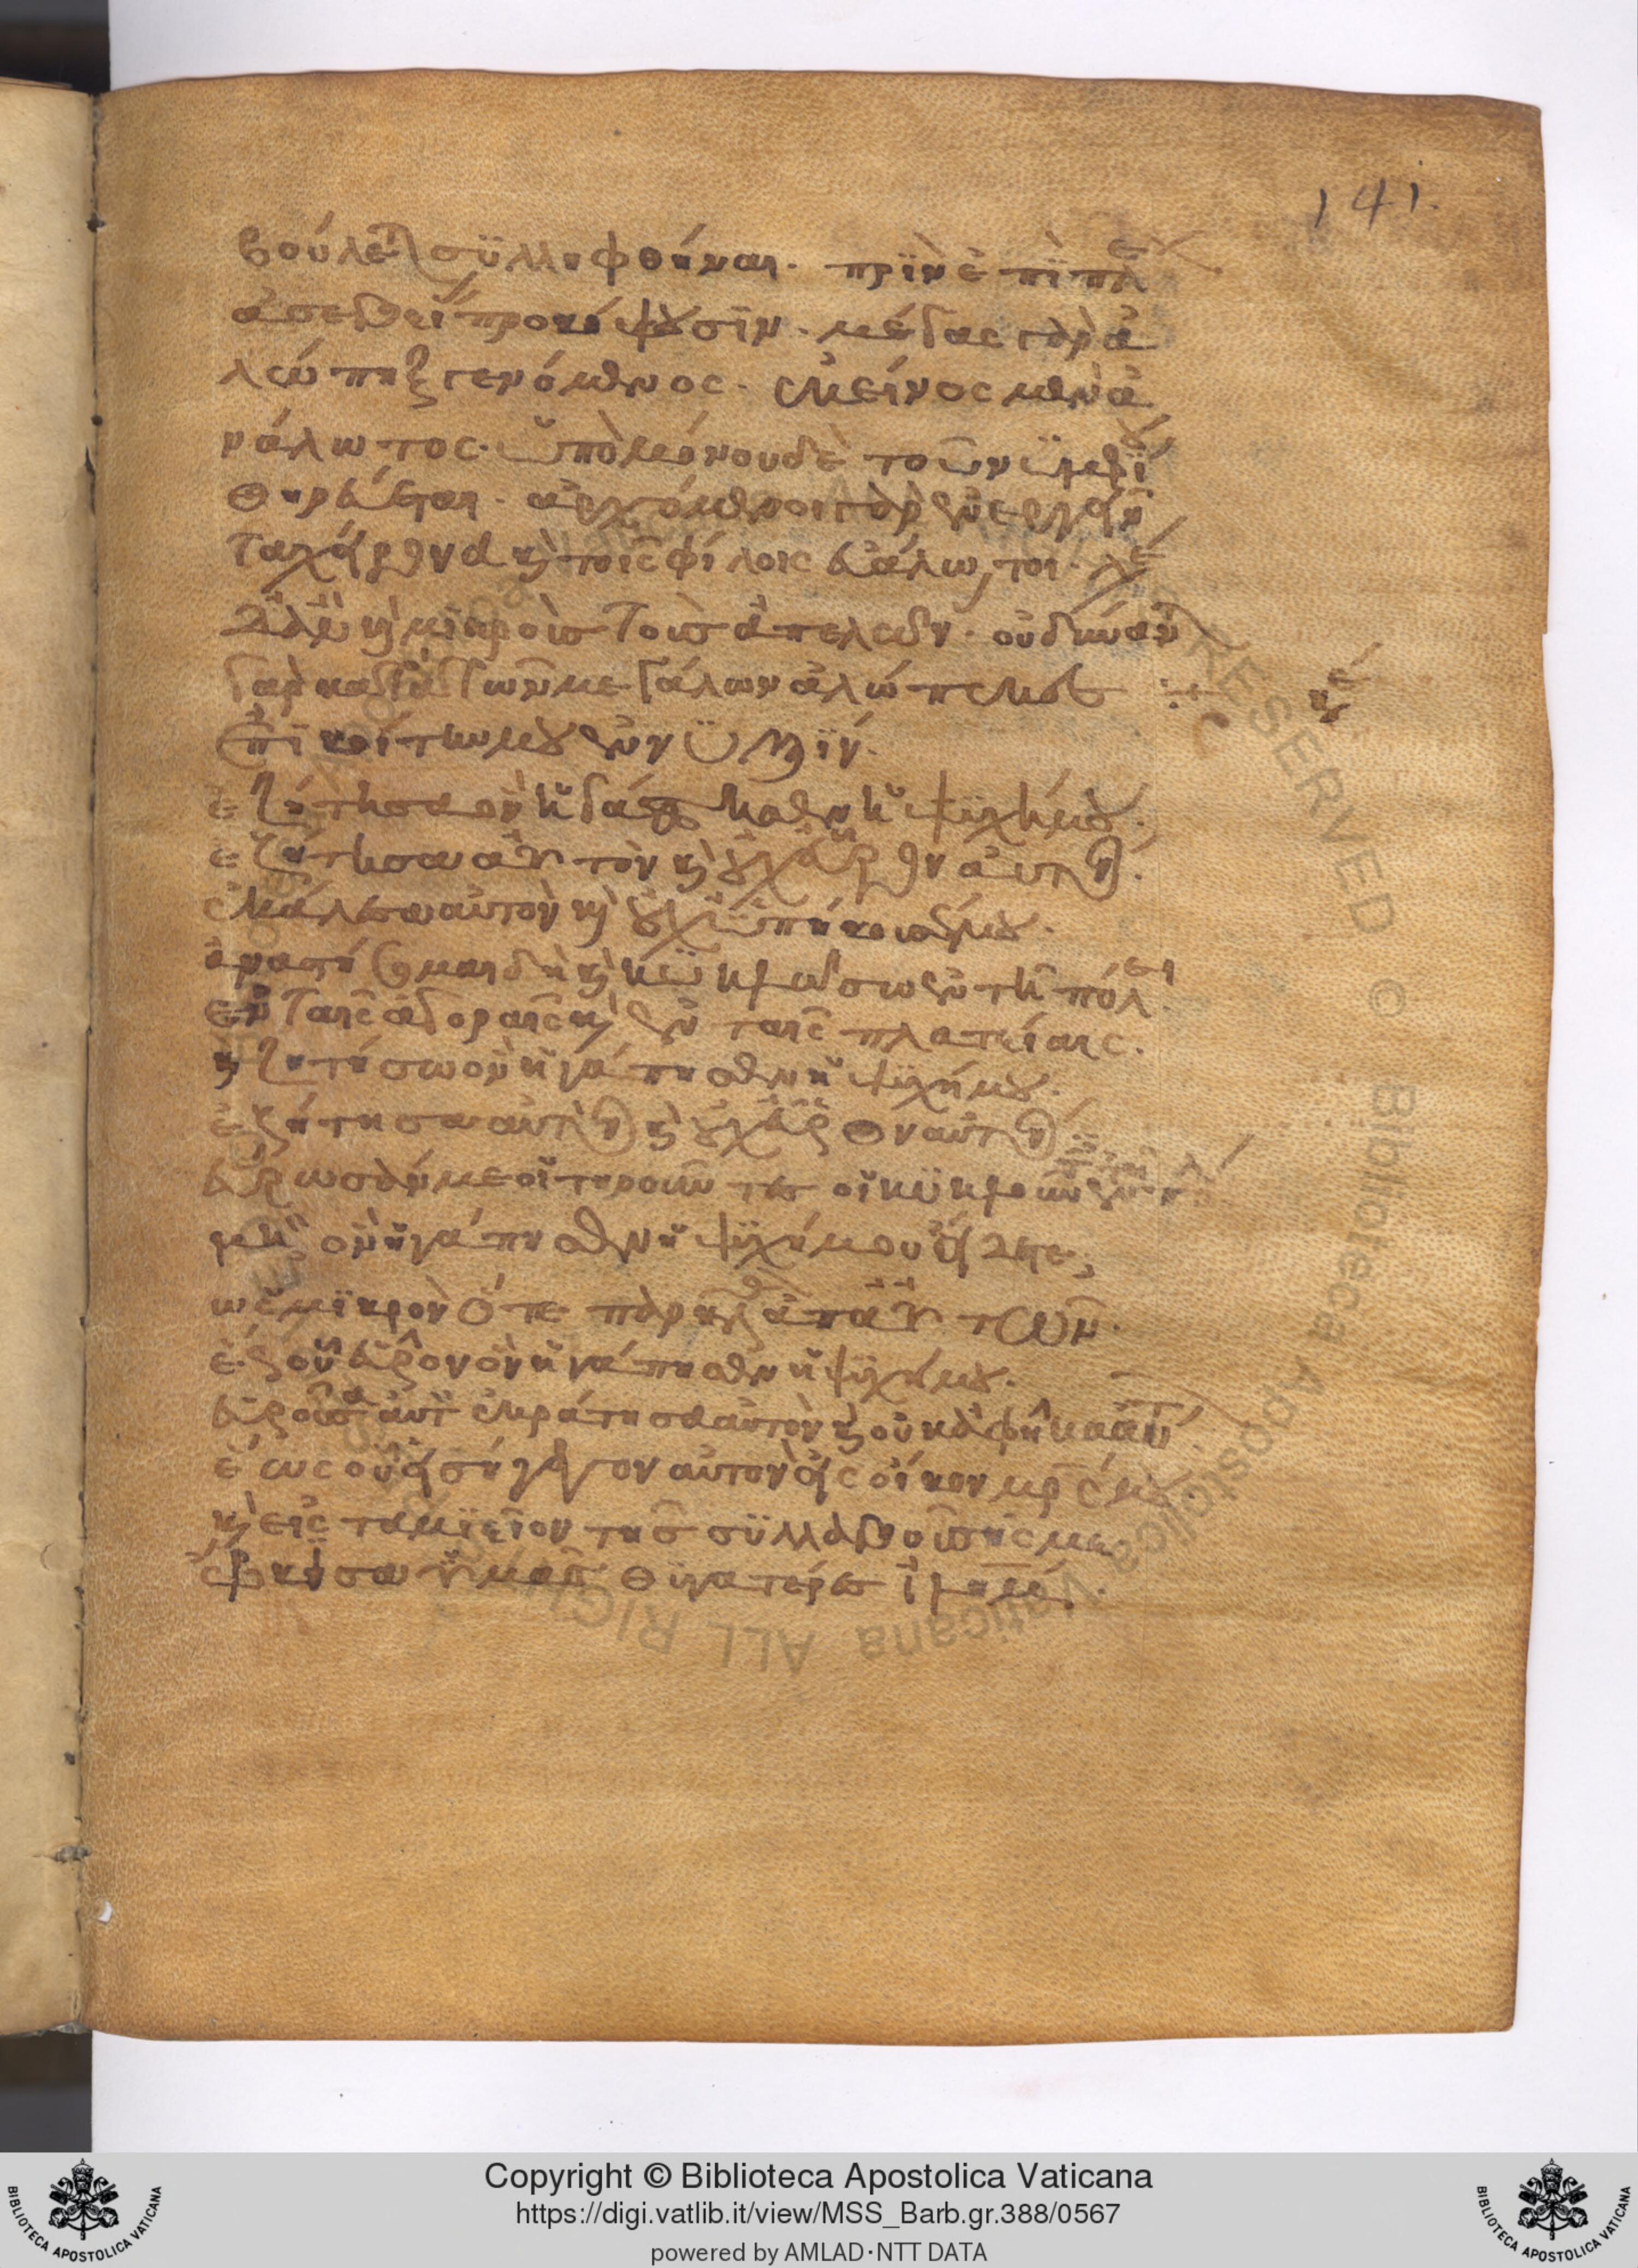 141.
βούλεται συλληφθῆναι. πρὶν ἐπὶ πλέ
ἀσεβείᾳ προκόψουσιν. μέγας γὰρ ἀ
λώπηξ γενόμενος. ἐκεῖνος μὲν ἀ
νάλωτος. ὑπὸ μόνου δὲ τοῦ νυμφί
θηρεύεται. ἀρχόμενοι γὰρ ἐν ἐργάν
ταχεῖρον καὶ τοῖς φίλοις εὐάλωτοι.
καὶ μικροὺς τοὺς ἀμπελών. οὐ δύναν
γὰρ καταγων μεγάλων ἀλώπεκες
ἐπὶ κοίτην μου ἐν νυξίν.
ἐζήτησα ὃν ἠγάπησεν ἡ ψυχή μου.
ἐζήτησα αὐτὸν καὶ οὐχ εὗρον αὐτόν.
ἐκάλεσα αὐτὸν καὶ οὐχ ὑπήκουσέν μου.
ἀναστήσομαι δὴ καὶ κυκλώσω ἐν τῇ πόλει.
ἐν ταῖς ἀγοραῖς καὶ ἐν ταῖς πλατείαις.
καὶ ζητήσω ὃν ἠγάπησεν ἡ ψυχή μου.
ἐζήτησα αὐτὸν καὶ οὐχ εὗρον αὐτόν.
εὕροσάν με οἱ τηροῦντες οἱ κυκλοῦντες ἐν τῇ πόλει
μὴ ὃν ἠγάπησεν ἡ ψυχή μου εἴδετε;
ὡς μικρὸν ὅτε παρῆλθον ἀπ' αὐτῶν.
ἕως οὗ εὗρον ὃν ἠγάπησεν ἡ ψυχή μου.
εὑροῦσα αὐτὸν ἐκράτησα αὐτὸν καὶ οὐκ ἀφῆκα αὐτὸν
ἕως οὗ εἰσήγαγον αὐτὸν εἰς οἶκον μρς μου
καὶ εἰς ταμιεῖον τῆς συλλαβούσης με
ὥρκισα ὑμᾶς θυγατέρες ιλημ.
Copyright © Biblioteca Apostolica Vaticana
https://digi.vatlib.it/view/MSS_Barb.gr.388/0567
powered by AMLAD·NTT DATA